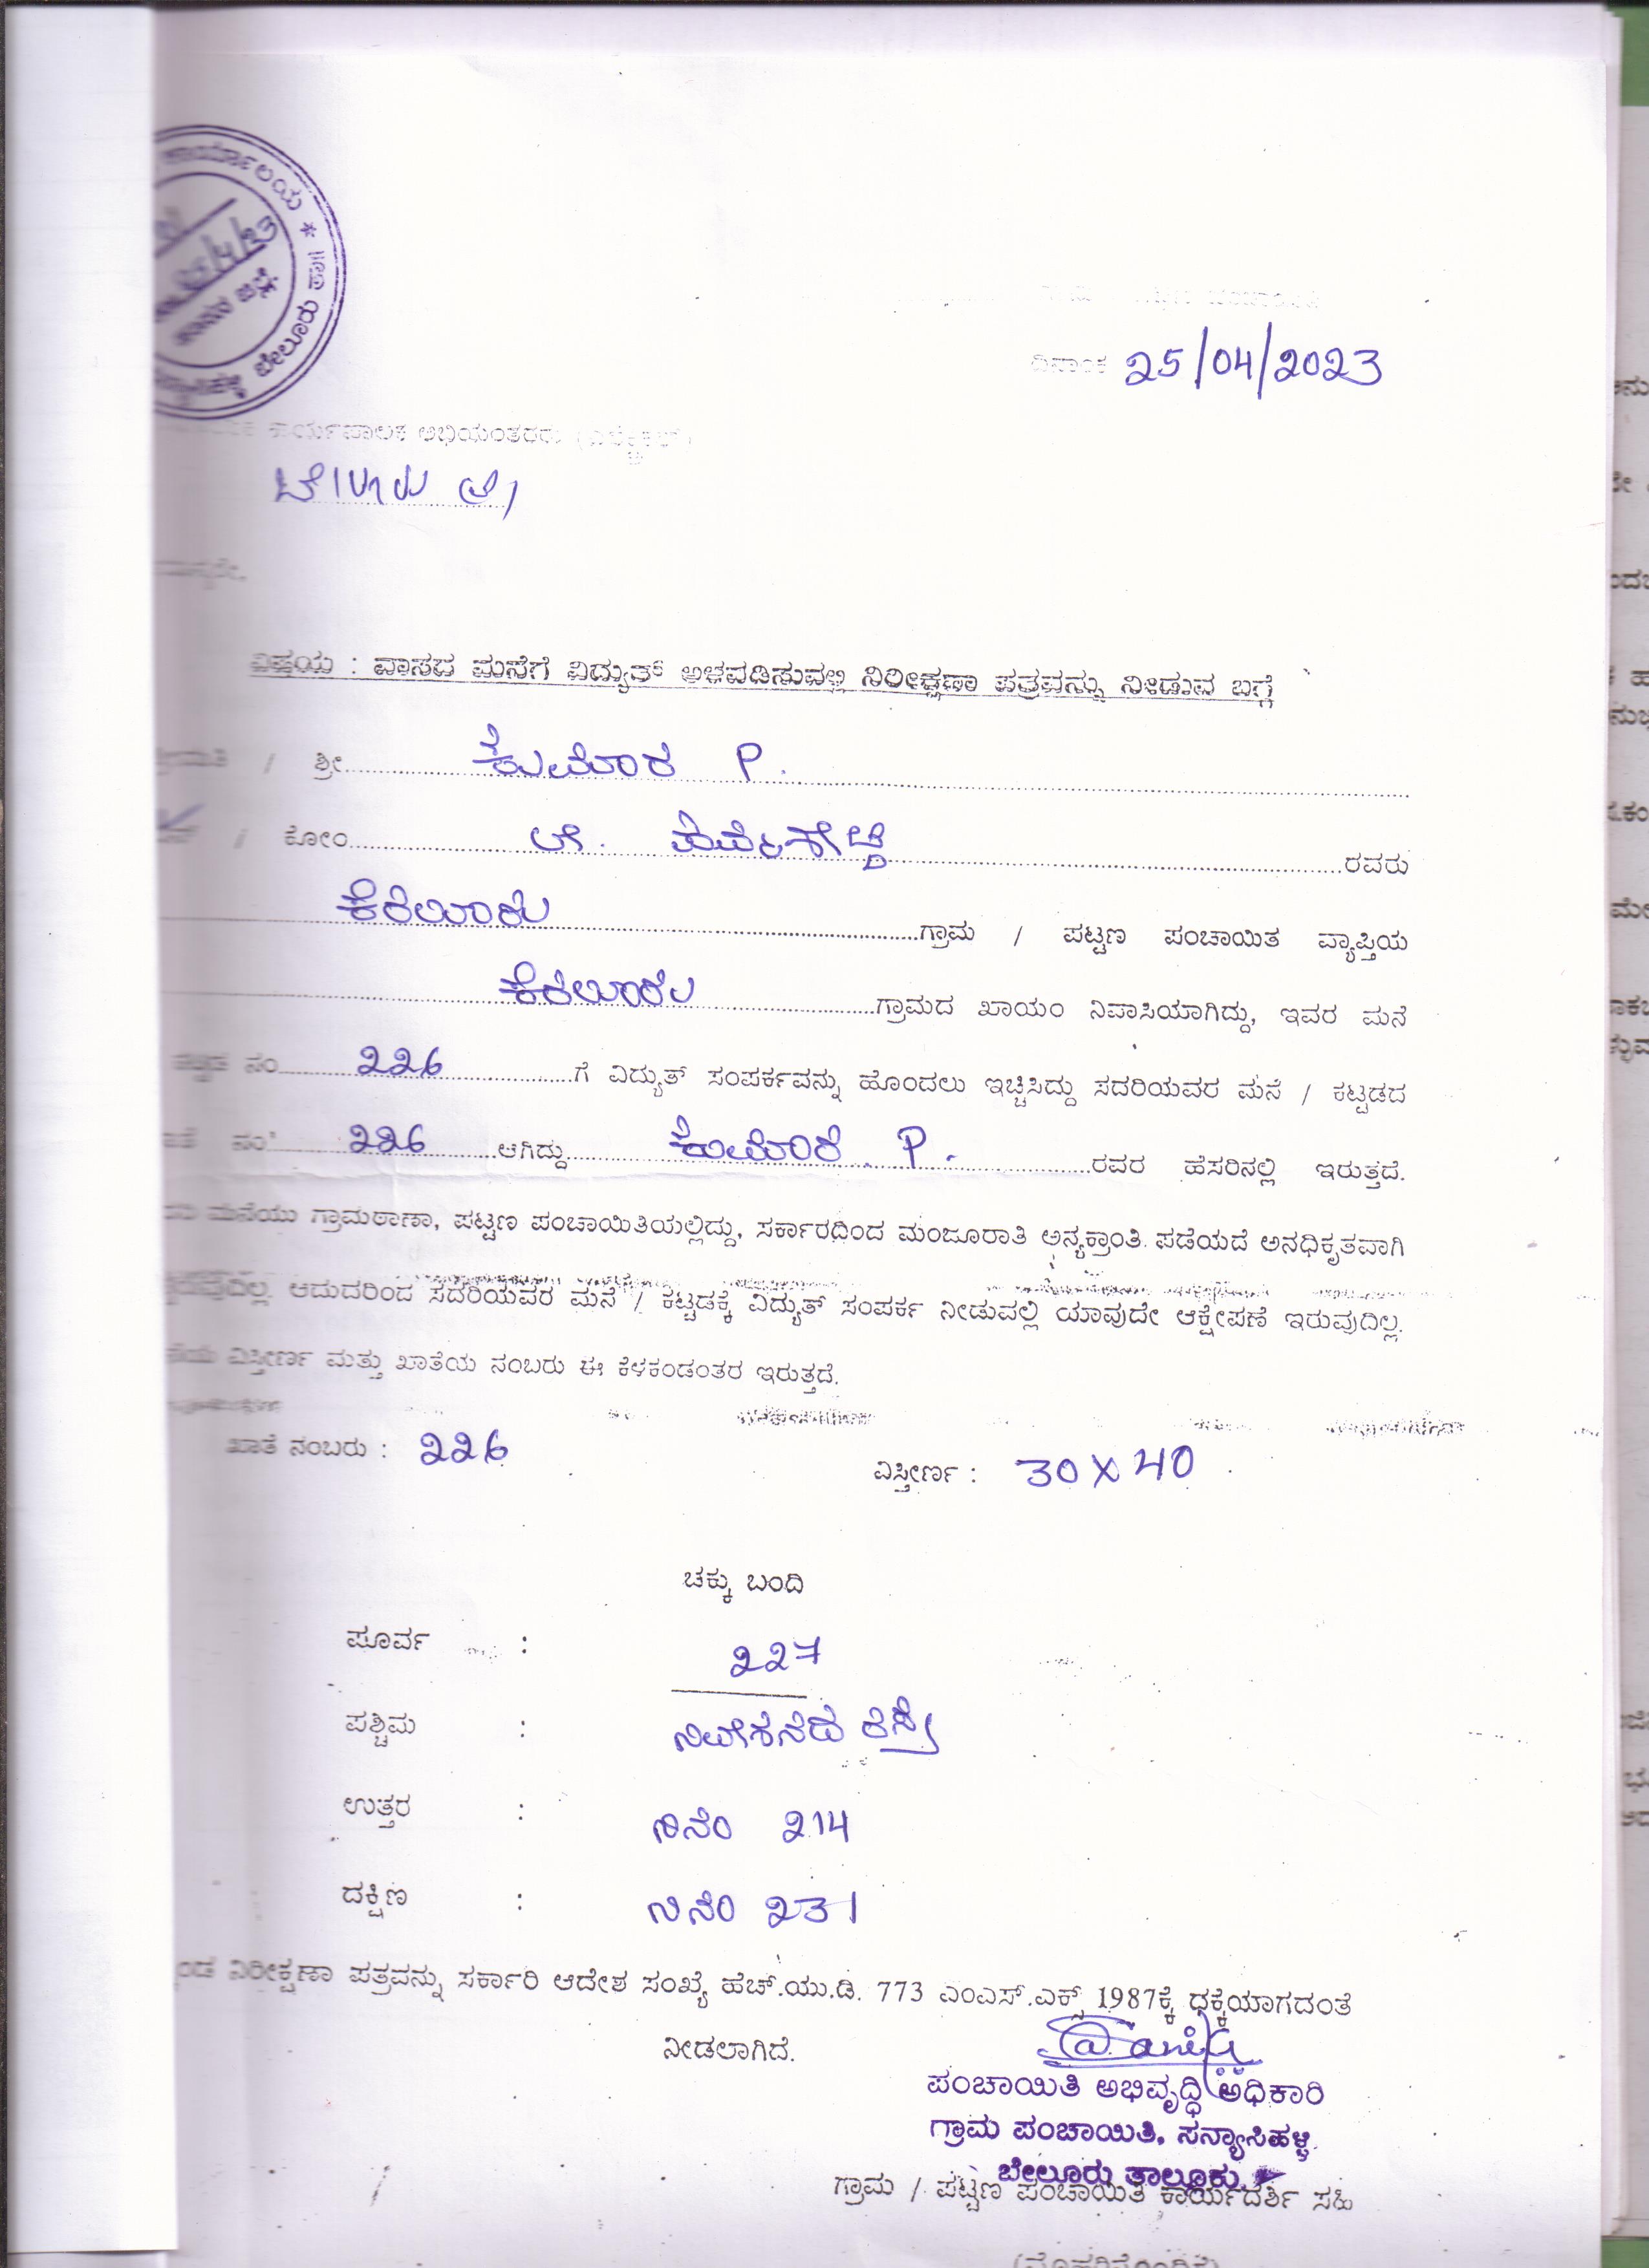 ಕಾರ್ಯಾಲಯ * ತಾ॥ ಬೇಲೂರು
ಹಾಸನ ಜಿಲ್ಲೆ
ದಿನಾಂಕ 25/04/2023
ಕಾರ್ಯಪಾಲಕ ಅಭಿಯಂತರರು
ವಿಷಯ : ವಾಸದ ಮನೆಗೆ ವಿದ್ಯುತ್ ಅಳವಡಿಸುವಲ್ಲಿ ನಿರೀಕ್ಷಣಾ ಪತ್ರವನ್ನು ನೀಡುವ ಬಗ್ಗೆ
/ ಶ್ರೀ ಕುಮಾರ P.
/ ಕೋಂ ರವರು
ಕೆರಲೂರು ಗ್ರಾಮ / ಪಟ್ಟಣ ಪಂಚಾಯಿತ ವ್ಯಾಪ್ತಿಯ
ಕೆರಲೂರು ಗ್ರಾಮದ ಖಾಯಂ ನಿವಾಸಿಯಾಗಿದ್ದು, ಇವರ ಮನೆ
ನಂ 226 ಗೆ ವಿದ್ಯುತ್ ಸಂಪರ್ಕವನ್ನು ಹೊಂದಲು ಇಚ್ಚಿಸಿದ್ದು ಸದರಿಯವರ ಮನೆ / ಕಟ್ಟಡದ
ನಂ 226 ಆಗಿದ್ದು ಕುಮಾರ. P. ರವರ ಹೆಸರಿನಲ್ಲಿ ಇರುತ್ತದೆ.
ಮನೆಯು ಗ್ರಾಮಠಾಣಾ, ಪಟ್ಟಣ ಪಂಚಾಯಿತಿಯಲ್ಲಿದ್ದು, ಸರ್ಕಾರದಿಂದ ಮಂಜೂರಾತಿ ಅನ್ಯಕ್ರಾಂತಿ ಪಡೆಯದೆ ಅನಧಿಕೃತವಾಗಿ
ಆದುದರಿಂದ ಸದರಿಯವರ ಮನೆ / ಕಟ್ಟಡಕ್ಕೆ ವಿದ್ಯುತ್ ಸಂಪರ್ಕ ನೀಡುವಲ್ಲಿ ಯಾವುದೇ ಆಕ್ಷೇಪಣೆ ಇರುವುದಿಲ್ಲ.
ವಿಸ್ತೀರ್ಣ ಮತ್ತು ಖಾತೆಯ ನಂಬರು ಈ ಕೆಳಕಂಡಂತರ ಇರುತ್ತದೆ.
ಖಾತೆ ನಂಬರು : 226
ವಿಸ್ತೀರ್ಣ : 30 X 40
ಚಕ್ಕು ಬಂದಿ
ಪೂರ್ವ : 227
ಪಶ್ಚಿಮ : ರಸ್ತೆ
ಉತ್ತರ : ನಿನಂ 214
ದಕ್ಷಿಣ : ನಿನಂ 231
ನಿರೀಕ್ಷಣಾ ಪತ್ರವನ್ನು ಸರ್ಕಾರಿ ಆದೇಶ ಸಂಖ್ಯೆ ಹೆಚ್.ಯು.ಡಿ. 773 ಎಂಎಸ್.ಎಕ್ಸ್ 1987ಕ್ಕೆ ಧಕ್ಕೆಯಾಗದಂತೆ
ನೀಡಲಾಗಿದೆ.
ಪಂಚಾಯಿತಿ ಅಭಿವೃದ್ಧಿ ಅಧಿಕಾರಿ
ಗ್ರಾಮ ಪಂಚಾಯಿತಿ, ಸನ್ಯಾಸಿಹಳ್ಳಿ
ಬೇಲೂರು ತಾಲ್ಲೂಕು.
ಗ್ರಾಮ / ಪಟ್ಟಣ ಪಂಚಾಯಿತಿ ಕಾರ್ಯದರ್ಶಿ ಸಹಿ